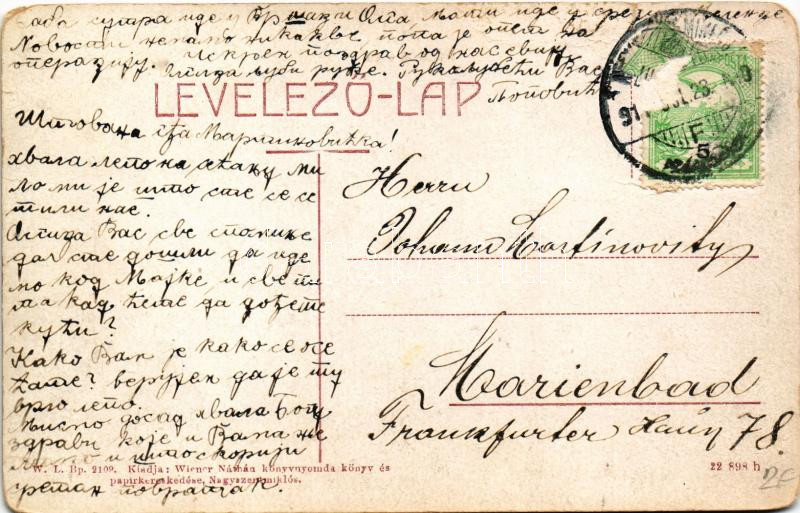 баба сутра иде у Вршац и Олга мати иде у среду Мелење
Новости немамо никакве, попа је опет за
операцију. Искрен поздрав од нас свију
љуби руже. Рукољубећи Вас
Поповић
LEVELEZŐ-LAP
Штована г̄ђа Мартиновићка!
хвала лепо на сећању ми
ло ми је што сте се се
тили нас.
Олгица Вас све спомиње
да сте дошли да иде
мо код Мајке и све пи
та кад ћете да дођете
кући?
Како Вам је како се осе
ћате? верујем да је ту
врло лепо.
Мисмо досад хвала Богу
здрави које и Вама же
лимо и што скорији
сретан повратак.
Herrn
Johann Martinovity
Marienbad
Frankfurter Haus 78.
911 JUL. 23
F
5
W. L. Bp. 2109. Kiadja: Wiener Náthán könyvnyomda könyv és
papirkereskedése, Nagyszentmiklós.
22 898 h